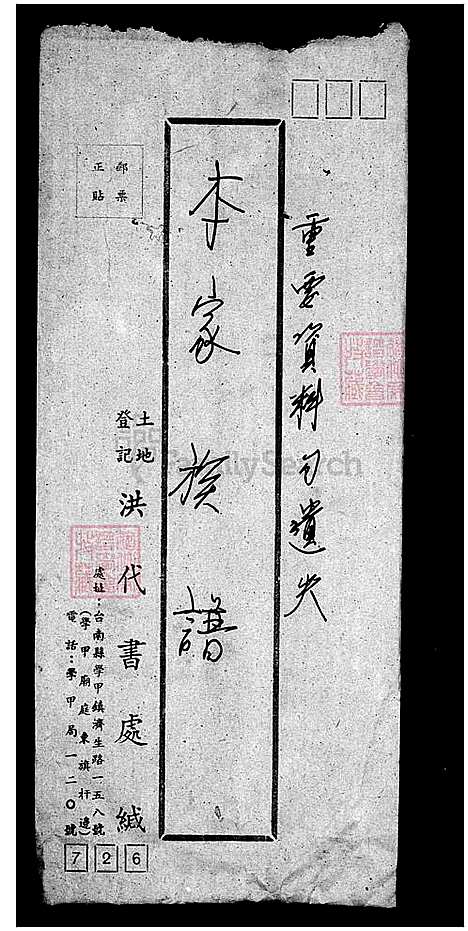 重要資料勿遺失
本家族譜
郵票
正貼
土地
登記
洪代書處緘
處址：台南縣學甲鎮濟生路一五八號
(學甲廟庭東旗杆邊)
電話：學甲局一二〇號
726
FamilySearch